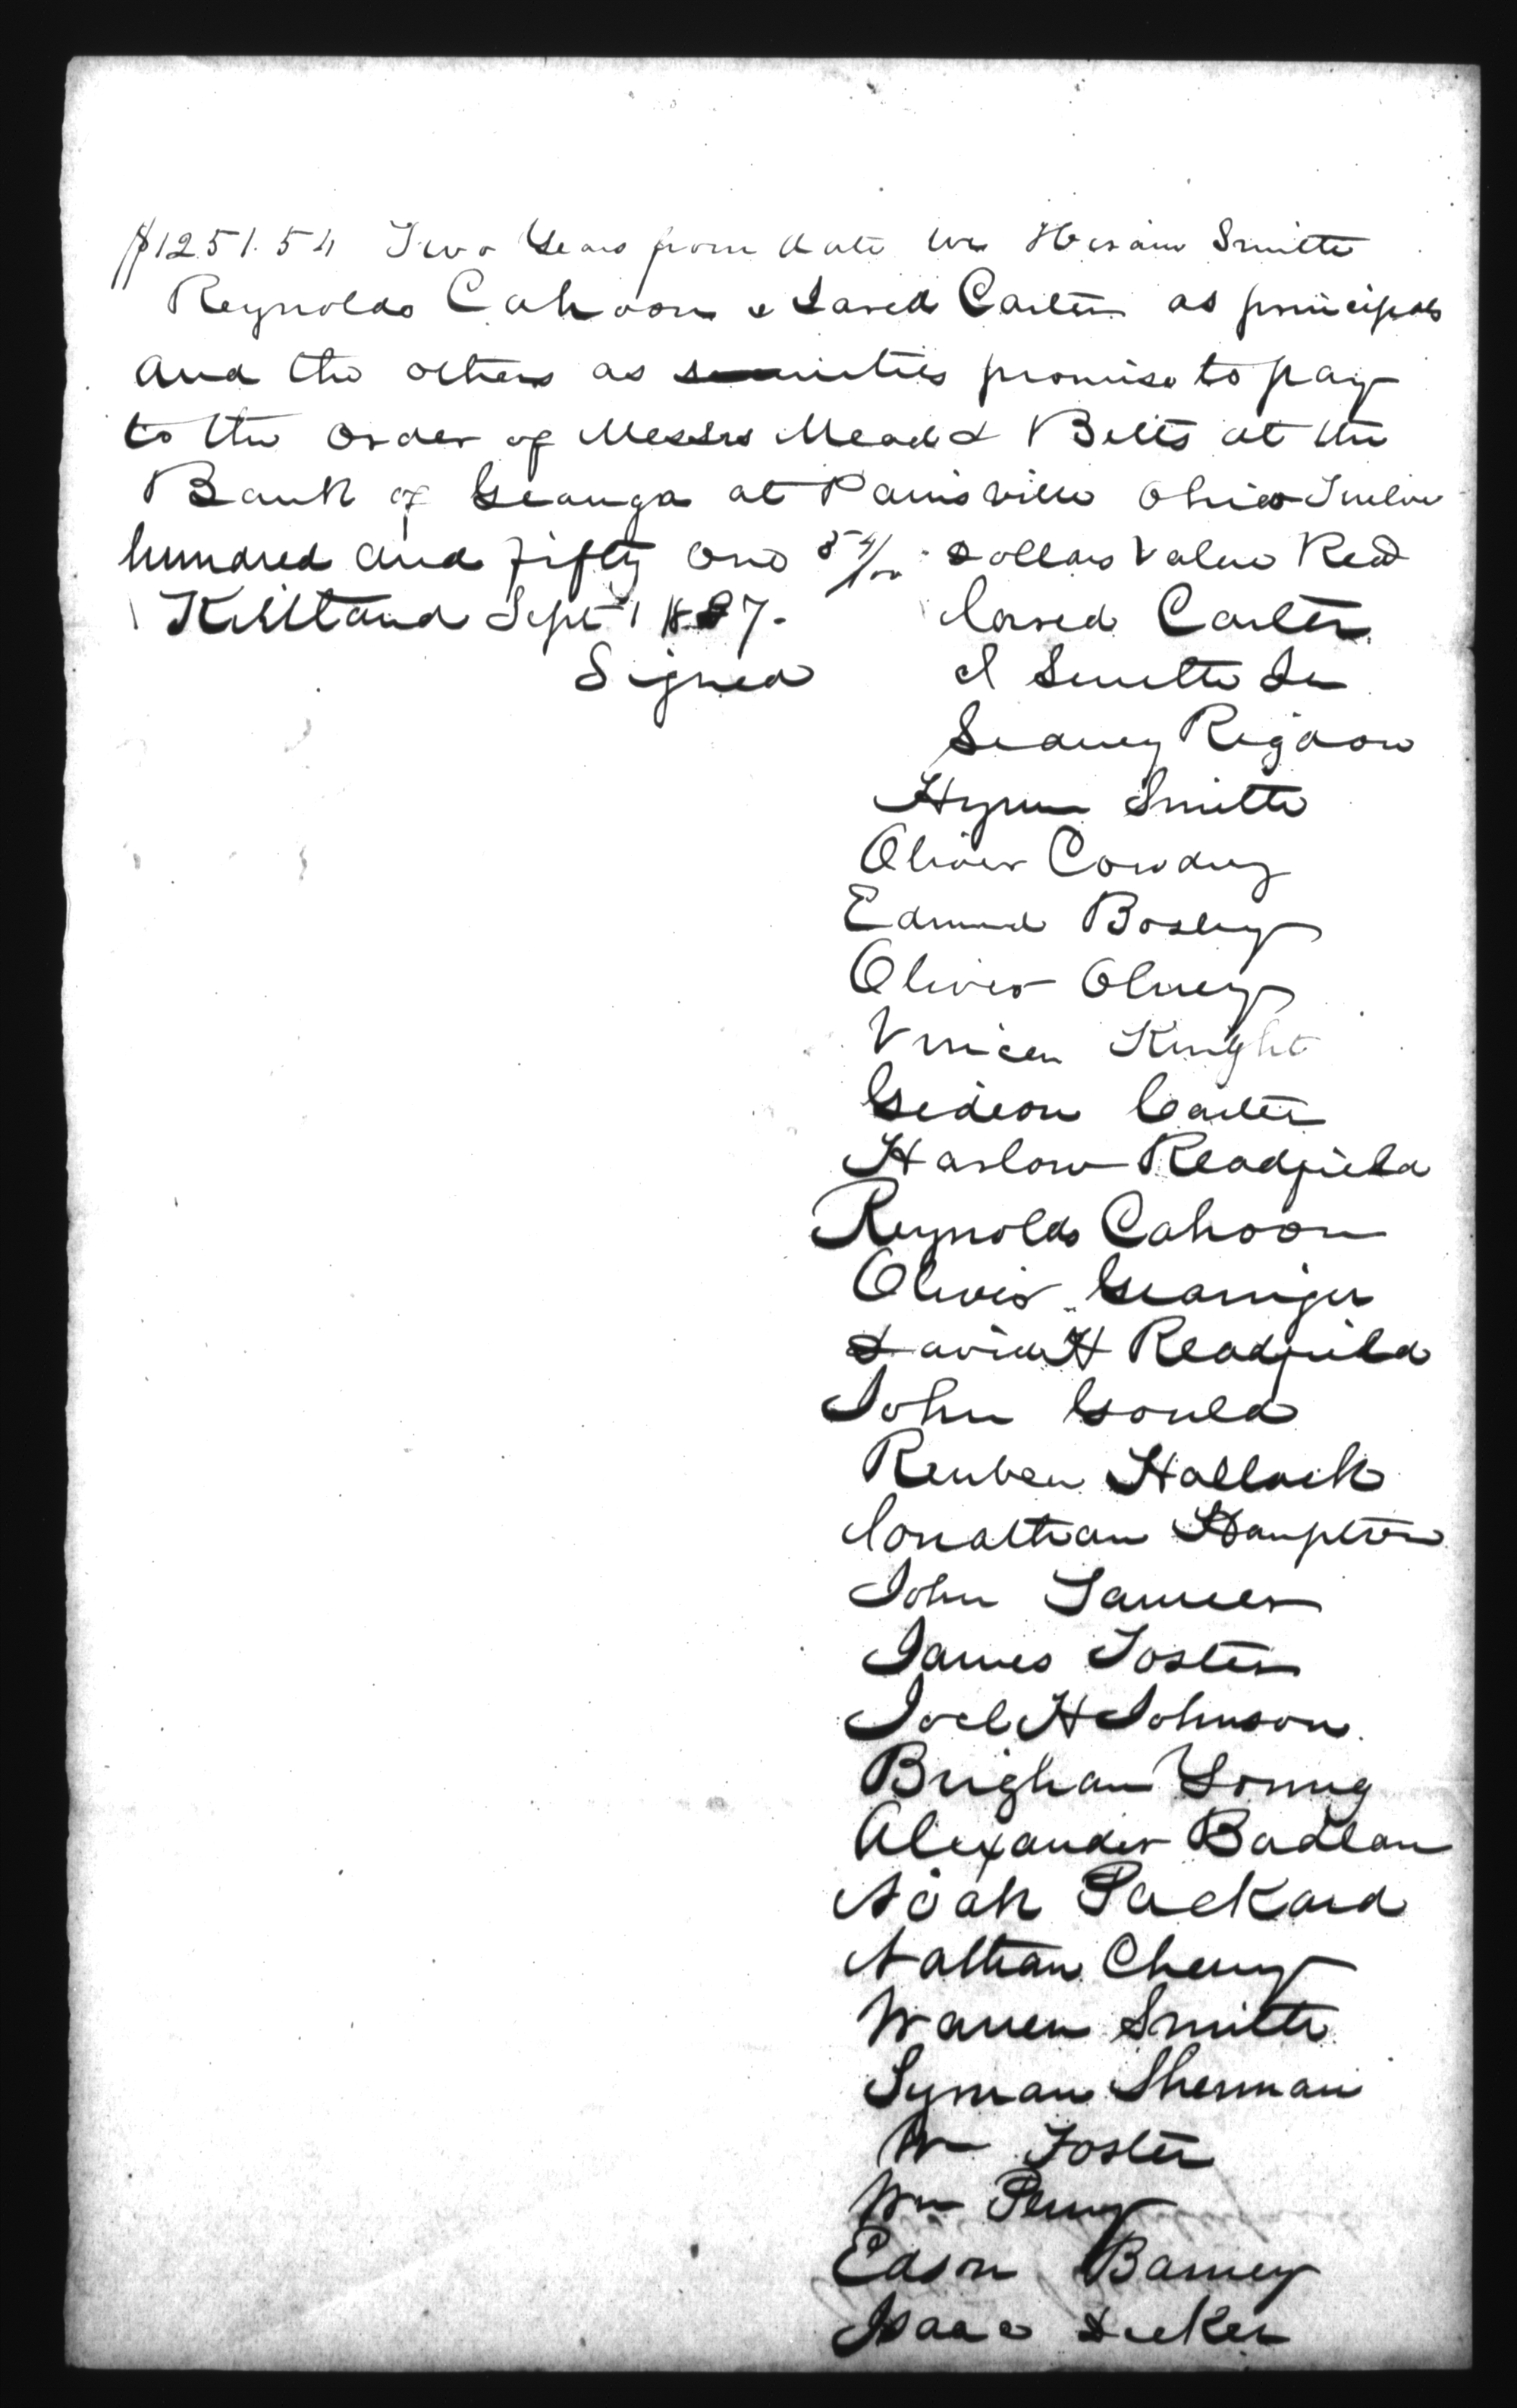 $1251.54 Two Years from date we Hiram Smith
Reynolds Cahoon & Jared Carter as principals
and the others as sureties promise to pay
to the order of Messrs Mead & Betts at the
Bank of Geauga at Painsville Ohio Twelve
hundred and fifty one 54/100 Dollars Value Recd
Kirtland Sept 1 1837.
Jared Carter
Signed
J Smith Jr
Sidney Rigdon
Hyrum Smith
Oliver Cowdry
Edmund Bosley
Oliver Olney
Vinson Knight
Gideon Carter
Harlow Readfield
Reynolds Cahoon
Oliver Granger
David H Readfield
John Gould
Reuben Hallock
Jonathan Hampton
John
James Foster
Joel H Johnson
Brigham Young
Alexander Badlam
Noah Packard
Nathan Cheny
Warren Smith
Lyman Sherman
Wm Foster
Wm Perry
Edson Barney
Isaac Decker